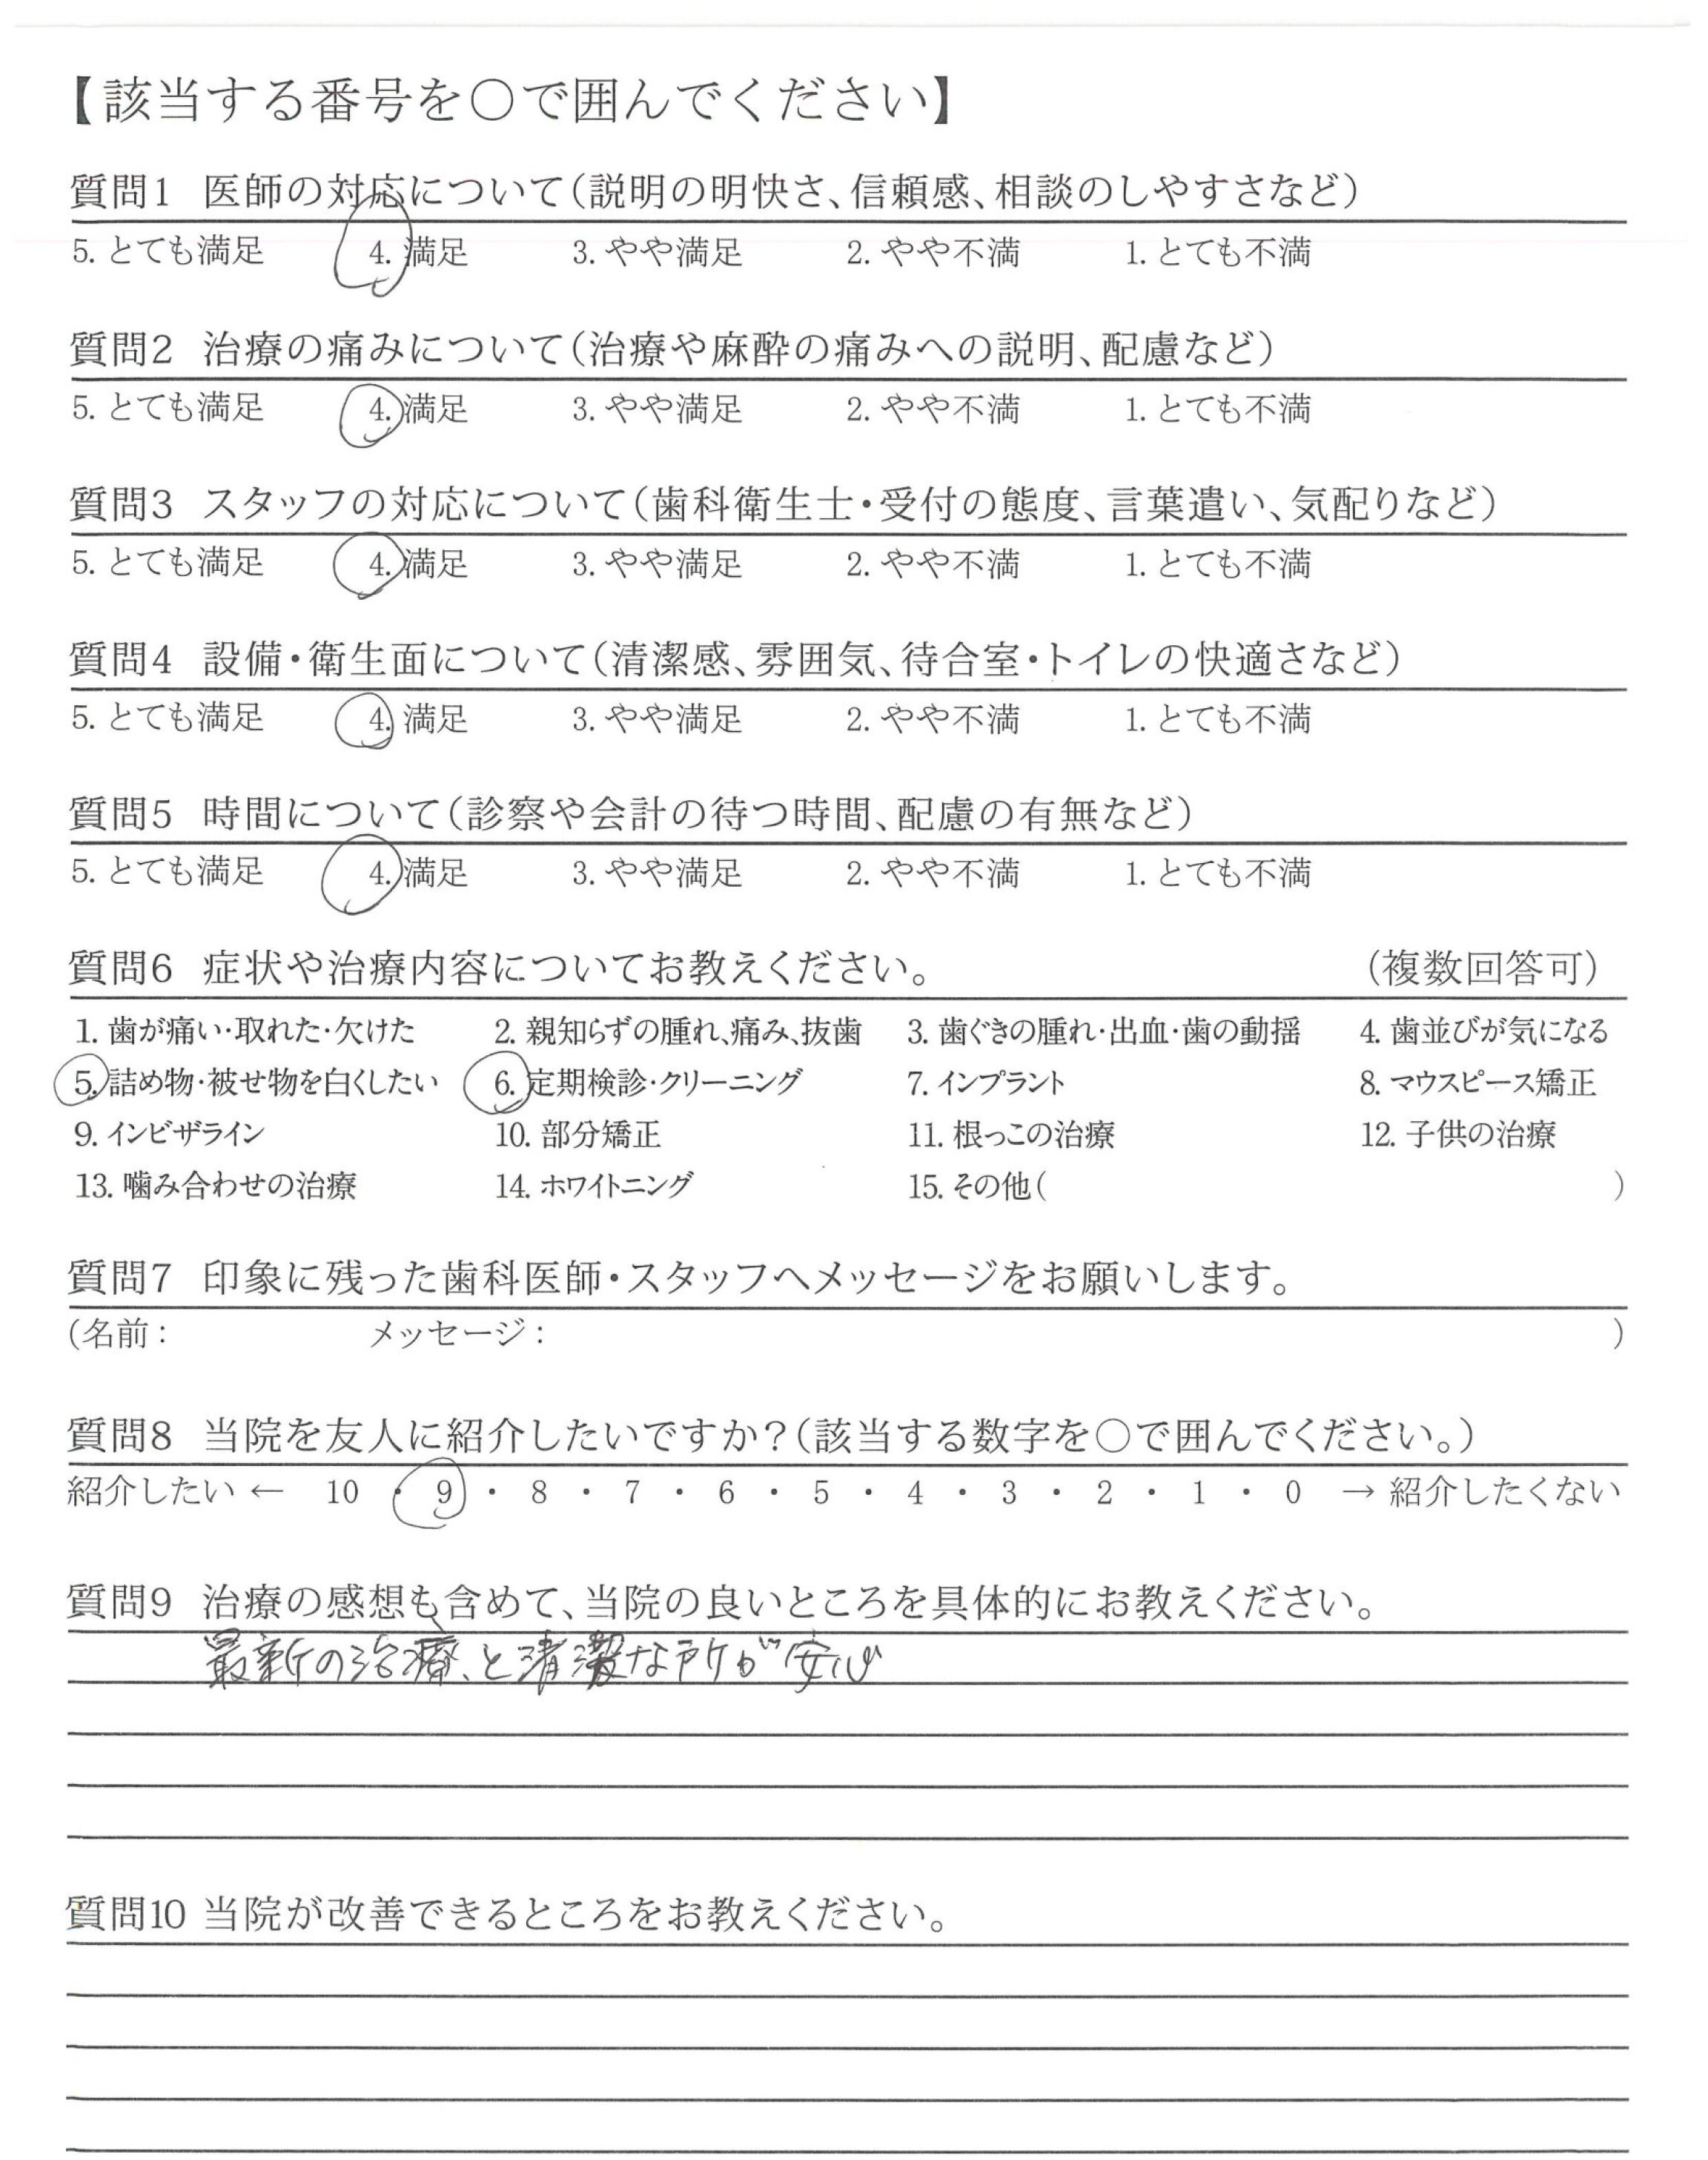 【該当する番号を○で囲んでください】
質問1 医師の対応について(説明の明快さ、信頼感、相談のしやすさなど)
5. とても満足 4. 満足 3. やや満足 2. やや不満 1. とても不満
質問2 治療の痛みについて(治療や麻酔の痛みへの説明、配慮など)
5. とても満足 4. 満足 3. やや満足 2. やや不満 1. とても不満
質問3 スタッフの対応について(歯科衛生士・受付の態度、言葉遣い、気配りなど)
5. とても満足 4. 満足 3. やや満足 2. やや不満 1. とても不満
質問4 設備・衛生面について(清潔感、雰囲気、待合室・トイレの快適さなど)
5. とても満足 4. 満足 3. やや満足 2. やや不満 1. とても不満
質問5 時間について(診察や会計の待つ時間、配慮の有無など)
5. とても満足 4. 満足 3. やや満足 2. やや不満 1. とても不満
質問6 症状や治療内容についてお教えください。 (複数回答可)
1. 歯が痛い・取れた・欠けた 2. 親知らずの腫れ、痛み、抜歯 3. 歯ぐきの腫れ・出血・歯の動揺 4. 歯並びが気になる
5. 詰め物・被せ物を白くしたい 6. 定期検診・クリーニング 7. インプラント 8. マウスピース矯正
9. インビザライン 10. 部分矯正 11. 根っこの治療 12. 子供の治療
13. 噛み合わせの治療 14. ホワイトニング 15. その他( )
質問7 印象に残った歯科医師・スタッフへメッセージをお願いします。
(名前: メッセージ: )
質問8 当院を友人に紹介したいですか?(該当する数字を○で囲んでください。)
紹介したい ← 10 ・ 9 ・ 8 ・ 7 ・ 6 ・ 5 ・ 4 ・ 3 ・ 2 ・ 1 ・ 0 → 紹介したくない
質問9 治療の感想も含めて、当院の良いところを具体的にお教えください。
最新の治療、と清潔な所が安心
質問10 当院が改善できるところをお教えください。